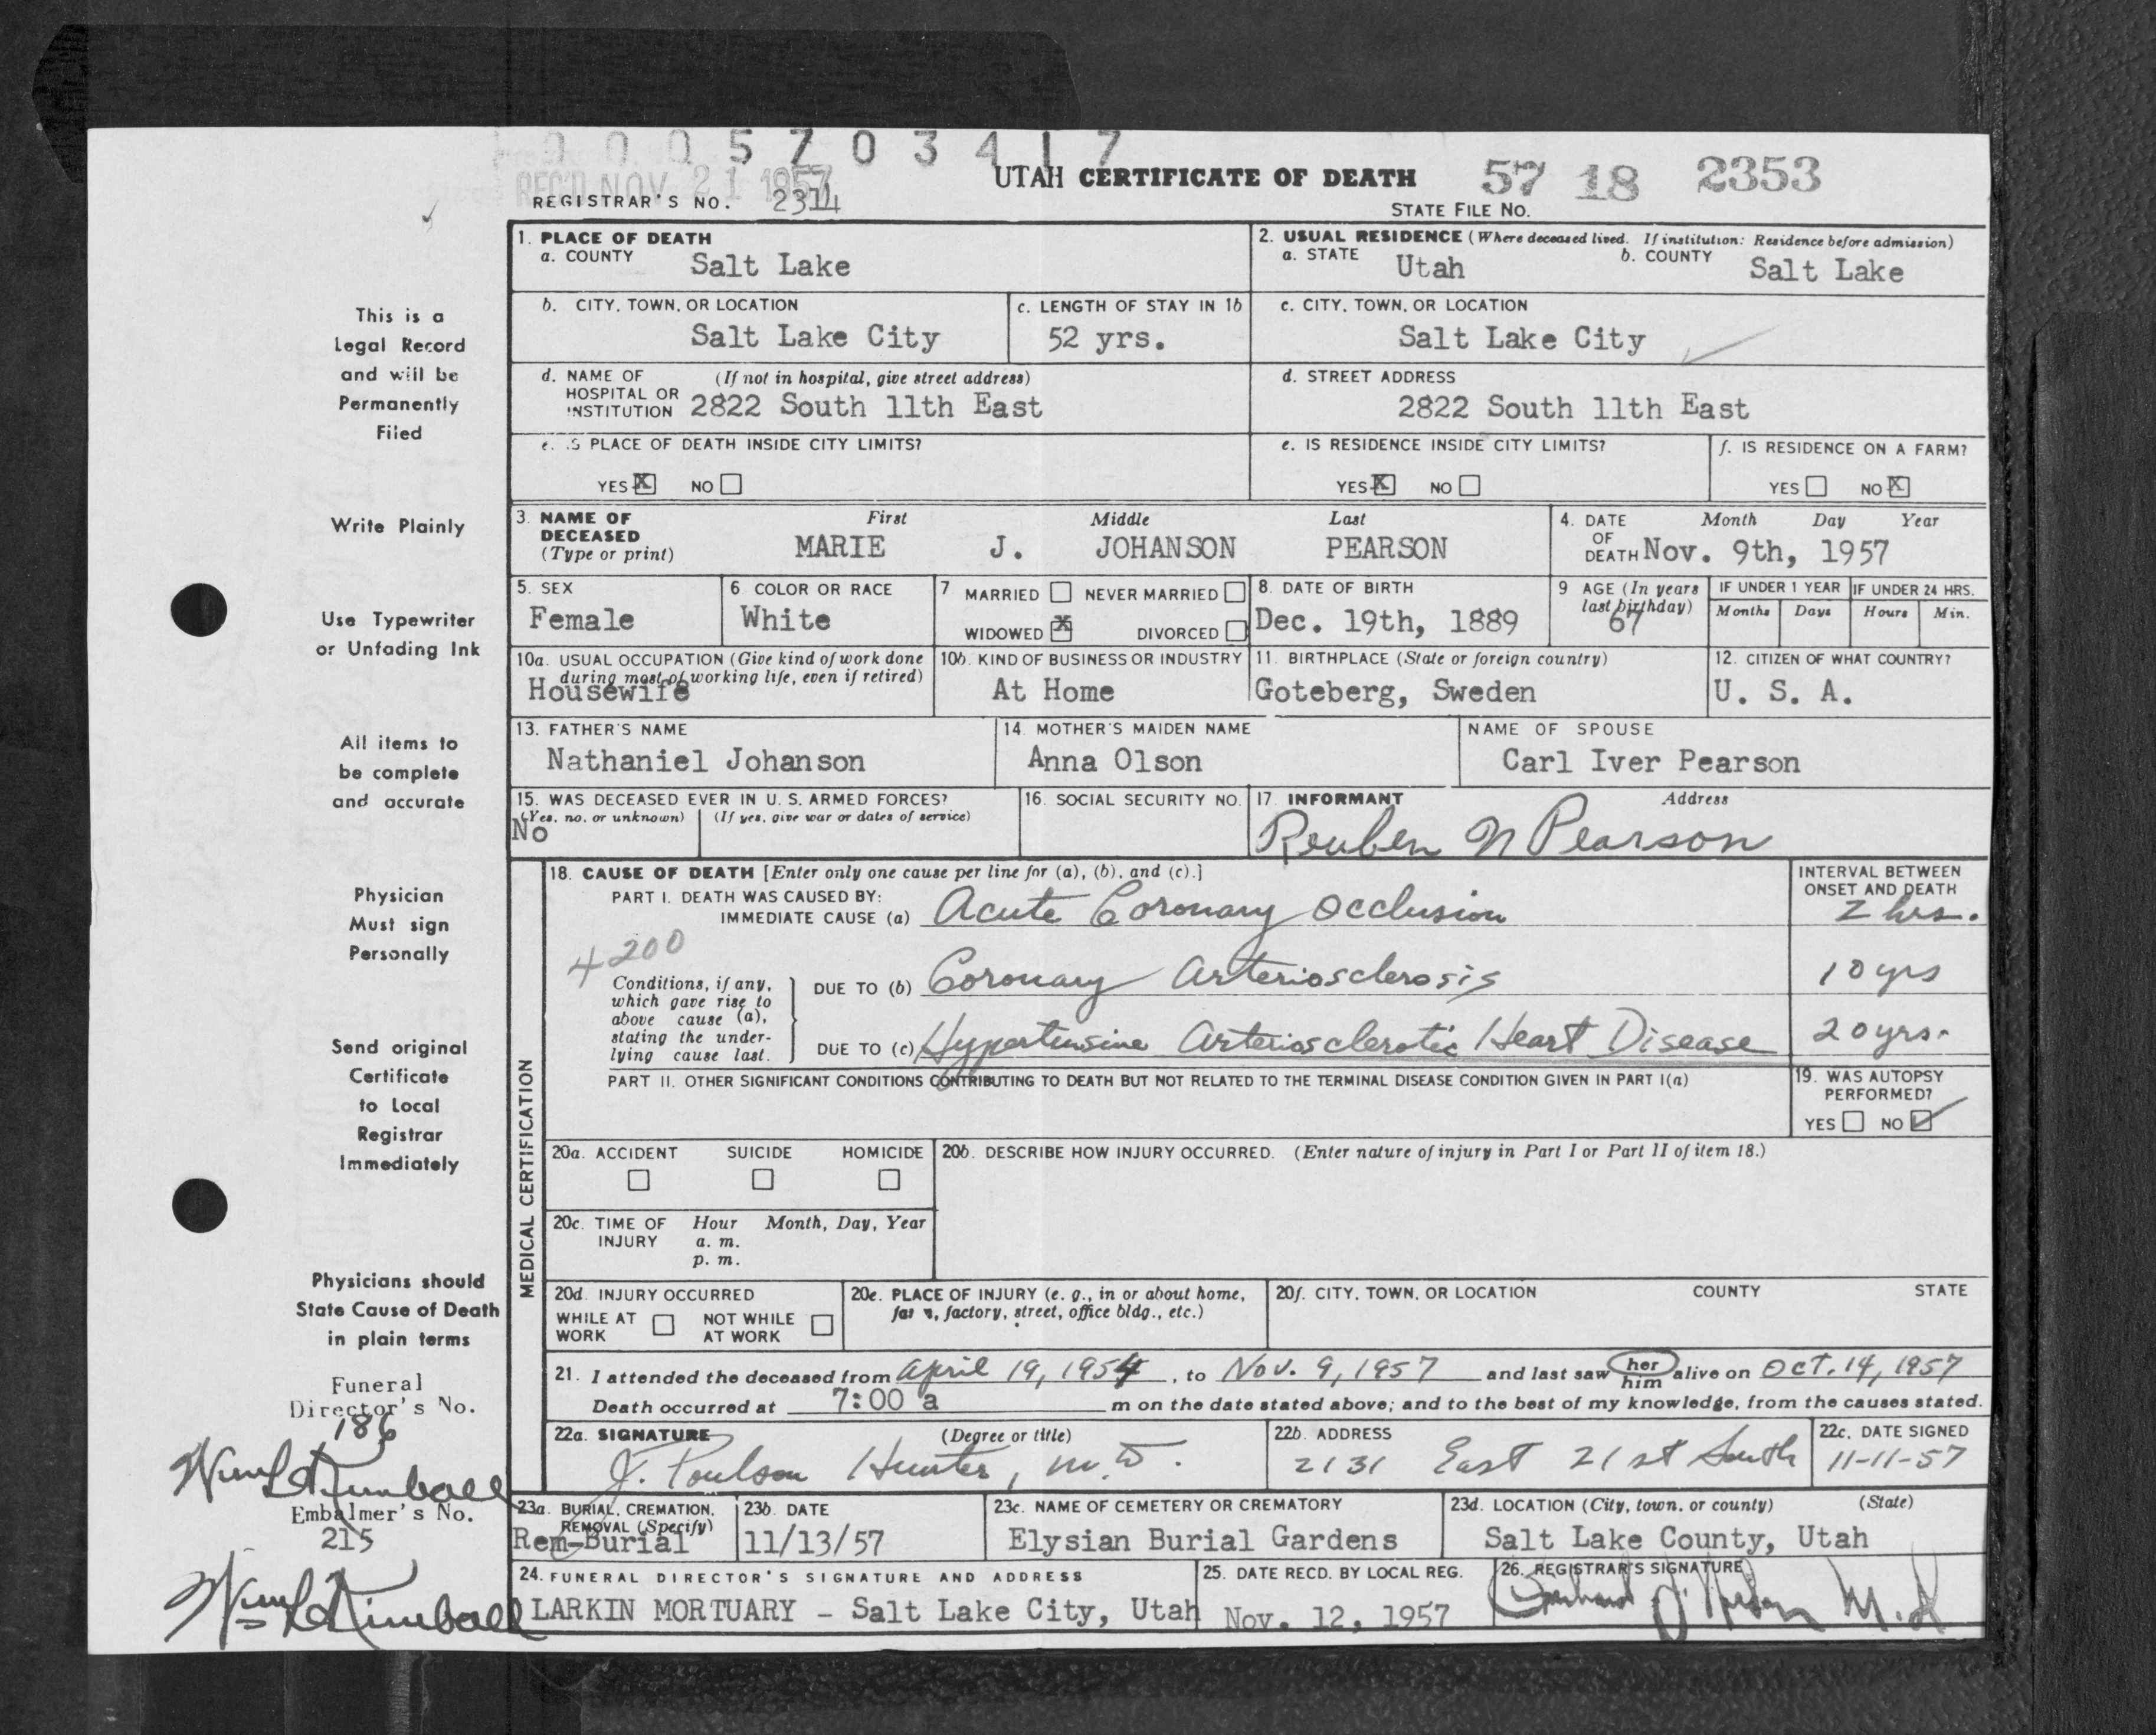 0 0 0 5 7 0 3 4 1 7
REC'D NOV 21 1957
UTAH CERTIFICATE OF DEATH 57 18 2353
REGISTRAR'S NO. 2314
STATE FILE NO.
1. PLACE OF DEATH
a. COUNTY Salt Lake
2. USUAL RESIDENCE (Where deceased lived. If institution: Residence before admission)
a. STATE Utah b. COUNTY Salt Lake
b. CITY, TOWN, OR LOCATION
Salt Lake City
c. LENGTH OF STAY IN 1b
52 yrs.
c. CITY, TOWN, OR LOCATION
Salt Lake City
d. NAME OF HOSPITAL OR INSTITUTION (If not in hospital, give street address)
2822 South 11th East
d. STREET ADDRESS
2822 South 11th East
e. IS PLACE OF DEATH INSIDE CITY LIMITS?
YES X NO
e. IS RESIDENCE INSIDE CITY LIMITS?
YES X NO
f. IS RESIDENCE ON A FARM?
YES NO X
3. NAME OF DECEASED (Type or print)
First Middle Last
MARIE J. JOHANSON PEARSON
4. DATE OF DEATH Month Day Year
Nov. 9th, 1957
5. SEX
Female
6. COLOR OR RACE
White
7 MARRIED NEVER MARRIED
WIDOWED X DIVORCED
8. DATE OF BIRTH
Dec. 19th, 1889
9 AGE (In years last birthday)
67
IF UNDER 1 YEAR IF UNDER 24 HRS.
Months Days Hours Min.
10a. USUAL OCCUPATION (Give kind of work done during most of working life, even if retired)
Housewife
10b. KIND OF BUSINESS OR INDUSTRY
At Home
11. BIRTHPLACE (State or foreign country)
Goteberg, Sweden
12. CITIZEN OF WHAT COUNTRY?
U. S. A.
13. FATHER'S NAME
Nathaniel Johanson
14. MOTHER'S MAIDEN NAME
Anna Olson
NAME OF SPOUSE
Carl Iver Pearson
15. WAS DECEASED EVER IN U. S. ARMED FORCES?
(Yes, no, or unknown) (If yes, give war or dates of service)
No
16. SOCIAL SECURITY NO.
17 INFORMANT Address
Reuben N Pearson
MEDICAL CERTIFICATION
18. CAUSE OF DEATH [Enter only one cause per line for (a), (b), and (c).]
INTERVAL BETWEEN ONSET AND DEATH
PART I. DEATH WAS CAUSED BY:
IMMEDIATE CAUSE (a) Acute Coronary Occlusion 2 hrs.
4200
Conditions, if any, which gave rise to above cause (a), stating the underlying cause last.
DUE TO (b) Coronary Arteriosclerosis 10 yrs
DUE TO (c) Hypertensive Arteriosclerotic Heart Disease 20 yrs.
PART II. OTHER SIGNIFICANT CONDITIONS CONTRIBUTING TO DEATH BUT NOT RELATED TO THE TERMINAL DISEASE CONDITION GIVEN IN PART I(a)
19. WAS AUTOPSY PERFORMED?
YES NO ✓
20a. ACCIDENT SUICIDE HOMICIDE
20b. DESCRIBE HOW INJURY OCCURRED. (Enter nature of injury in Part I or Part II of item 18.)
20c. TIME OF INJURY Hour Month, Day, Year
a. m.
p. m.
20d. INJURY OCCURRED
WHILE AT WORK NOT WHILE AT WORK
20e. PLACE OF INJURY (e. g., in or about home, farm, factory, street, office bldg., etc.)
20f. CITY, TOWN, OR LOCATION COUNTY STATE
21. I attended the deceased from April 19, 1954, to Nov. 9, 1957 and last saw her him alive on Oct. 14, 1957
Death occurred at 7:00 a m on the date stated above; and to the best of my knowledge, from the causes stated.
22a. SIGNATURE (Degree or title)
J. Poulson Hunter, M.D.
22b. ADDRESS
2131 East 21st South
22c. DATE SIGNED
11-11-57
23a. BURIAL, CREMATION, REMOVAL (Specify)
Rem-Burial
23b. DATE
11/13/57
23c. NAME OF CEMETERY OR CREMATORY
Elysian Burial Gardens
23d. LOCATION (City, town, or county) (State)
Salt Lake County, Utah
24. FUNERAL DIRECTOR'S SIGNATURE AND ADDRESS
LARKIN MORTUARY - Salt Lake City, Utah
25. DATE RECD. BY LOCAL REG.
Nov. 12, 1957
26. REGISTRAR'S SIGNATURE
This is a
Legal Record
and will be
Permanently
Filed
Write Plainly
Use Typewriter
or Unfading Ink
All items to
be complete
and accurate
Physician
Must sign
Personally
Send original
Certificate
to Local
Registrar
Immediately
Physicians should
State Cause of Death
in plain terms
Funeral
Director's No.
186
Kimball
Embalmer's No.
215
Kimball